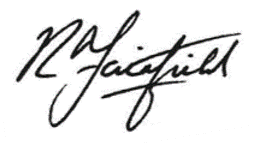 RA Fairfield